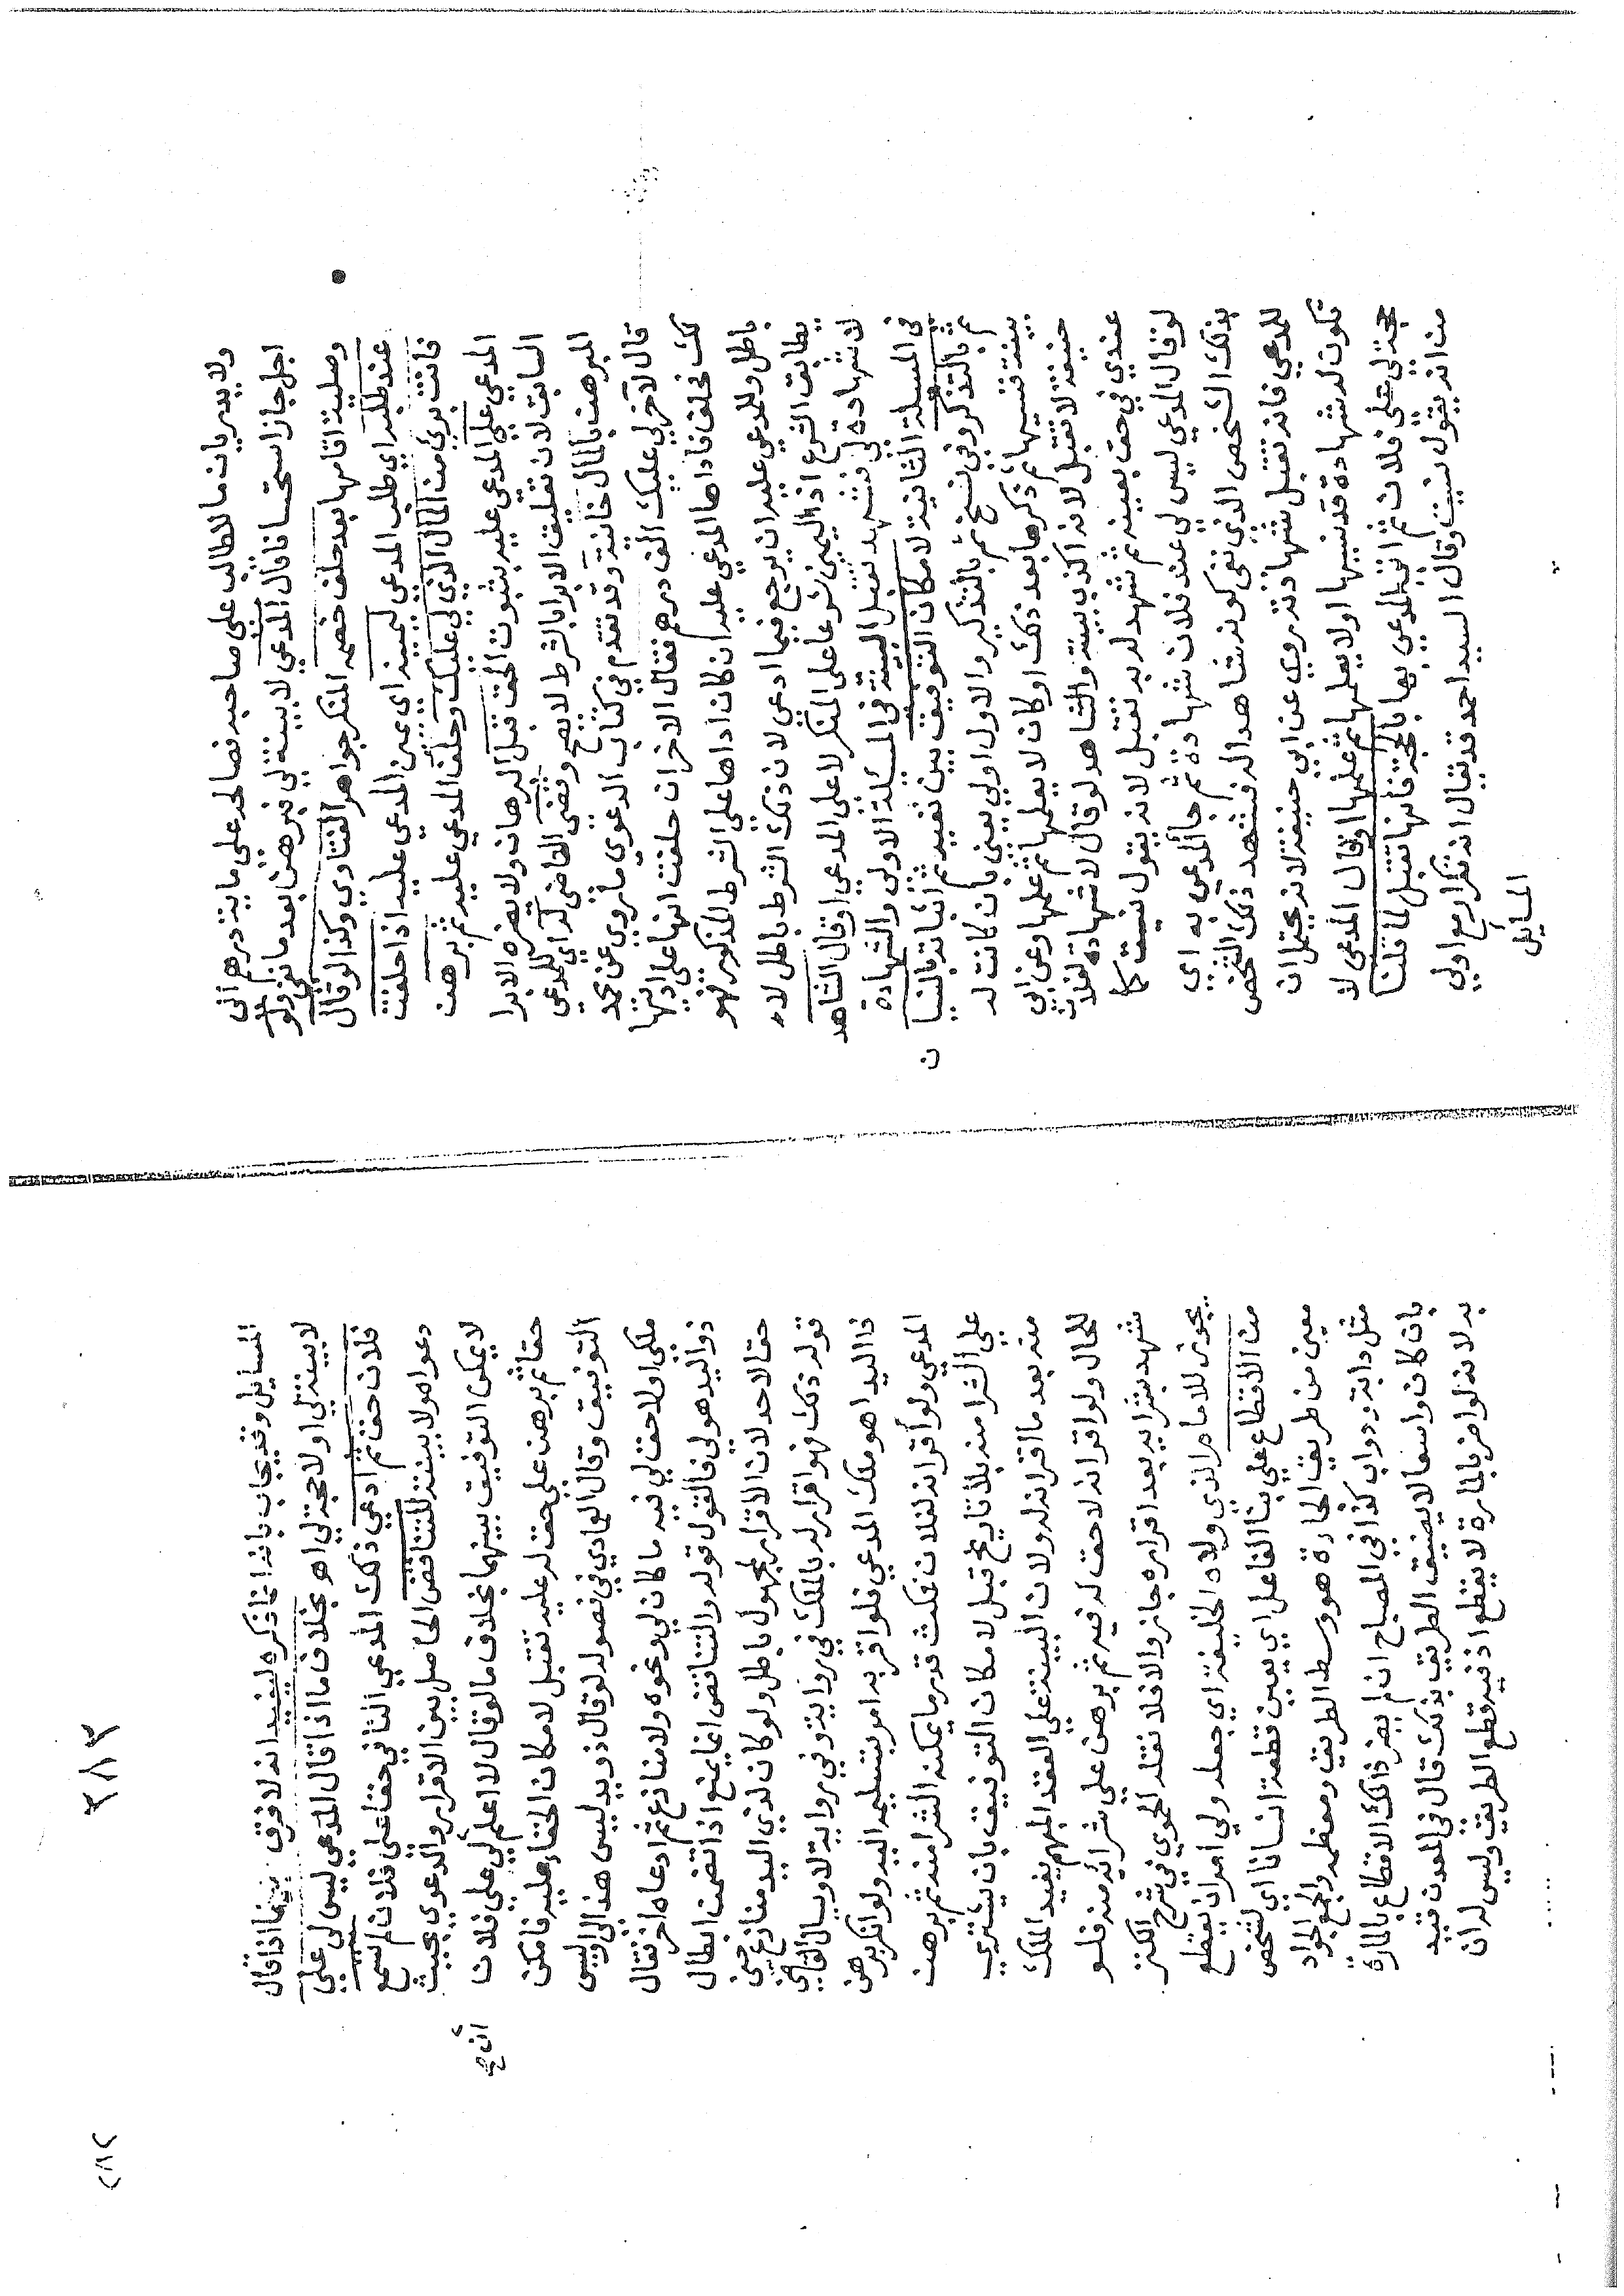 ولا يدريان ما للطالب على صاحبه نصالحه على ماية درهم الى
اجل جاز استحسانا قال المدعي لا بينة لي فبرهن بعد ما نفى ولو
وصلية اقامها بعد حلف خصمه المنكر جواهر الفتاوي وكذا لو قال
عند طلبه اي طلب المدعى ليمينه اي يمين المدعي عليه اذا حلفت
فانت بري من المال الذي لي عليك وحلف المدعي عليه ثم برهن
المدعي على المدعى عليه بثبوت الحق قبل البرهان ولا يضره الابرا
السابق لان تعليق الابرا بالشرط لا يصح وقضى القاضي له اي للمدعي
المبرهن بالمال خانية وقد تقدم في كتاب الدعوي ما نروي عن محمد
قال لآخر لي عليك الف درهم فقال الاخر ان حلفت انها علي اديتها
لك فحلف فاداها المدعي عليه ان كان اداها على الشرط المذكور فهو
باطل وللمدعي عليه ان يرجع فيما ادى لان ذلك الشرط باطل لانه
يطابق الشرع اذ اليمين شرعا على المنكر لا على المدعي او قال الشاهد
لا شهادة لي فشهد تقبل البينة في المسئلة الاولى والشهادة
في المسئلة الثانية لامكان التوفيق بين نفيه ثم اثباته بالنسيان
ثم بالتذكر وفي نسخ ثم بالتذكير والاول اولى يعني بان كانت له
بينة فنسيها ثم ذكرها بعد ذلك او كان لا يعلمها ثم علمها وعن ابي
حنيفة لا تقبل لانه اكذب بينته والشاهد لو قال لا شهادة لفلان
عندي في حق بعينه ثم شهد له به تقبل لانه يقول نسيت كما
لو قال المدعي ليس لي عند فلان شهادة ثم جا المدعي به اي
بذلك الشخص الذي نفى كونه شاهدا له فشهد ذلك الشخص
للمدعي فانه تقبل شهادته روي عن ابي حنيفة لانه يحتمل ان
تكون له شهادة قد نسيها او لا يعلمها ثم علمها او قال المدعى لا
حجة لي على فلان ثم اتى المدعي بها بالحجة فانها تقبل لما قلنا
من انه يقول نسيت وقال السيد احمد قد يقال انه تكرار مع اولي
المسايل
٢٨٣
المسايل وقد يجاب بانه انما ذكره ليفيد انه لا فرق بينما اذا قال
لا بينة لي او لا حجة لي اهـ بخلاف ما اذا قال المدعي ليس لي على
فلان حق ثم ادعى ذلك المدعي النافي حقا على فلان لم تسمع
دعواه ولا بينته للتناقض الحاصل بين الاقرار والدعوي بحيث
لا يمكن التوفيق بينهما بخلاف ما لو قال لا اعلم لي على فلان
حقا ثم برهن على حق له عليه تقبل لامكان الخفاء عليه فامكن
التوفيق وقال العمادي في فصوله لو قال ذو يد ليس هذا لي او ليس
ملكي او لاحق لي فيه ما كان لي ونحوه ولا منازع ثم ادعاه اخر فقال
ذو اليد هو لي فالقول قوله والتناقض انما يمنع اذا تضمن ابطال
حق لاحد لان الاقرار لمجهول باطل ولو كان لذي اليد منازع حين
قوله ذلك فهو اقرار له بالملك في رواية وفي رواية لا ويسال القاضي
ذا اليد اهو ملك المدعي فلو اقر به امر بتسليمه اليه ولو انكر برهن
المدعي ولو اقر انه لفلان فمكث قدر ما يمكنه الشرا منه ثم برهن
على الشرا منه بلا تاريخ قبل لامكان التوفيق بان يشتري
منه بعد ما اقر انه له ولان البينة على العقد المبهم يفيد الملك
للحال ولو اقر انه لاحق له فيه ثم برهن على شرائه منه فلو
شهد بشرايه بعد اقراره جاز والا فلا نقله الحموي في شرح الكنز
يجوز للامام الذي ولاه الخليفة اي جعله ولي امر ان يقطع
من الاقطاع على بنا الفاعل اي يعين قطعة انسانا اي لشخص
معين من طريق الجادة هو وسط الطريق ومعظمه والجمع الجواد
مثل دابة ودواب كذا في المصباح ان لم يضر ذلك الاقطاع بالمارة
بان كان واسعا لا يضيق الطريق بذلك قال في المعدن قيد
به لانه لو اضر بالمارة لا يقطع اذ فيه قطع الطريق وليس له ان
٢٨٢